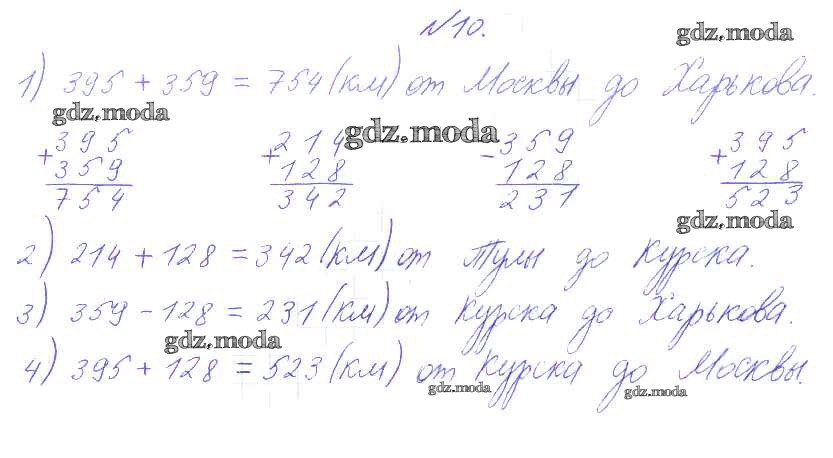 №10.
gdz.moda
1) 395 + 359 = 754 (км) от Москвы до Харькова.
gdz.moda
gdz.moda
+395 +214 -359 +395
359 128 128 128
754 342 231 523
gdz.moda
2) 214 + 128 = 342 (км) от Тулы до Курска.
3) 359 - 128 = 231 (км) от Курска до Харькова.
gdz.moda
4) 395 + 128 = 523 (км) от Курска до Москвы.
gdz.moda gdz.moda